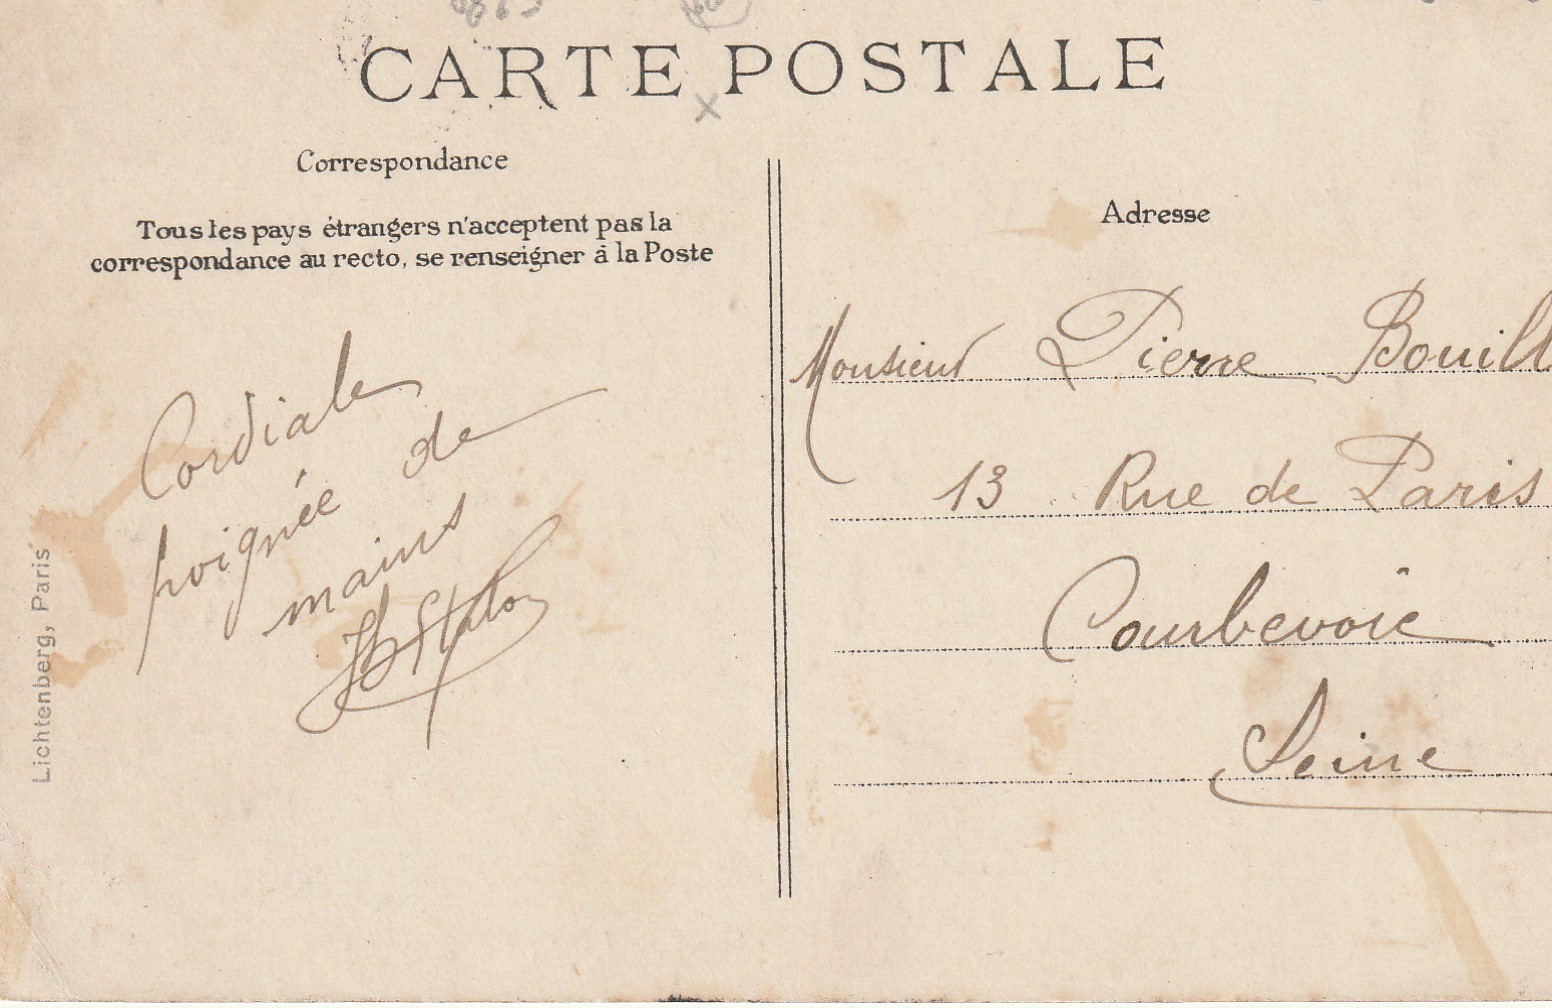 CARTE POSTALE
Correspondance
Tous les pays étrangers n'acceptent pas la
correspondance au recto, se renseigner à la Poste
Cordiale
poignée de
mains
Lichtenberg, Paris
Adresse
Monsieur Pierre Bouill
13 Rue de Paris
Courbevoie
Seine